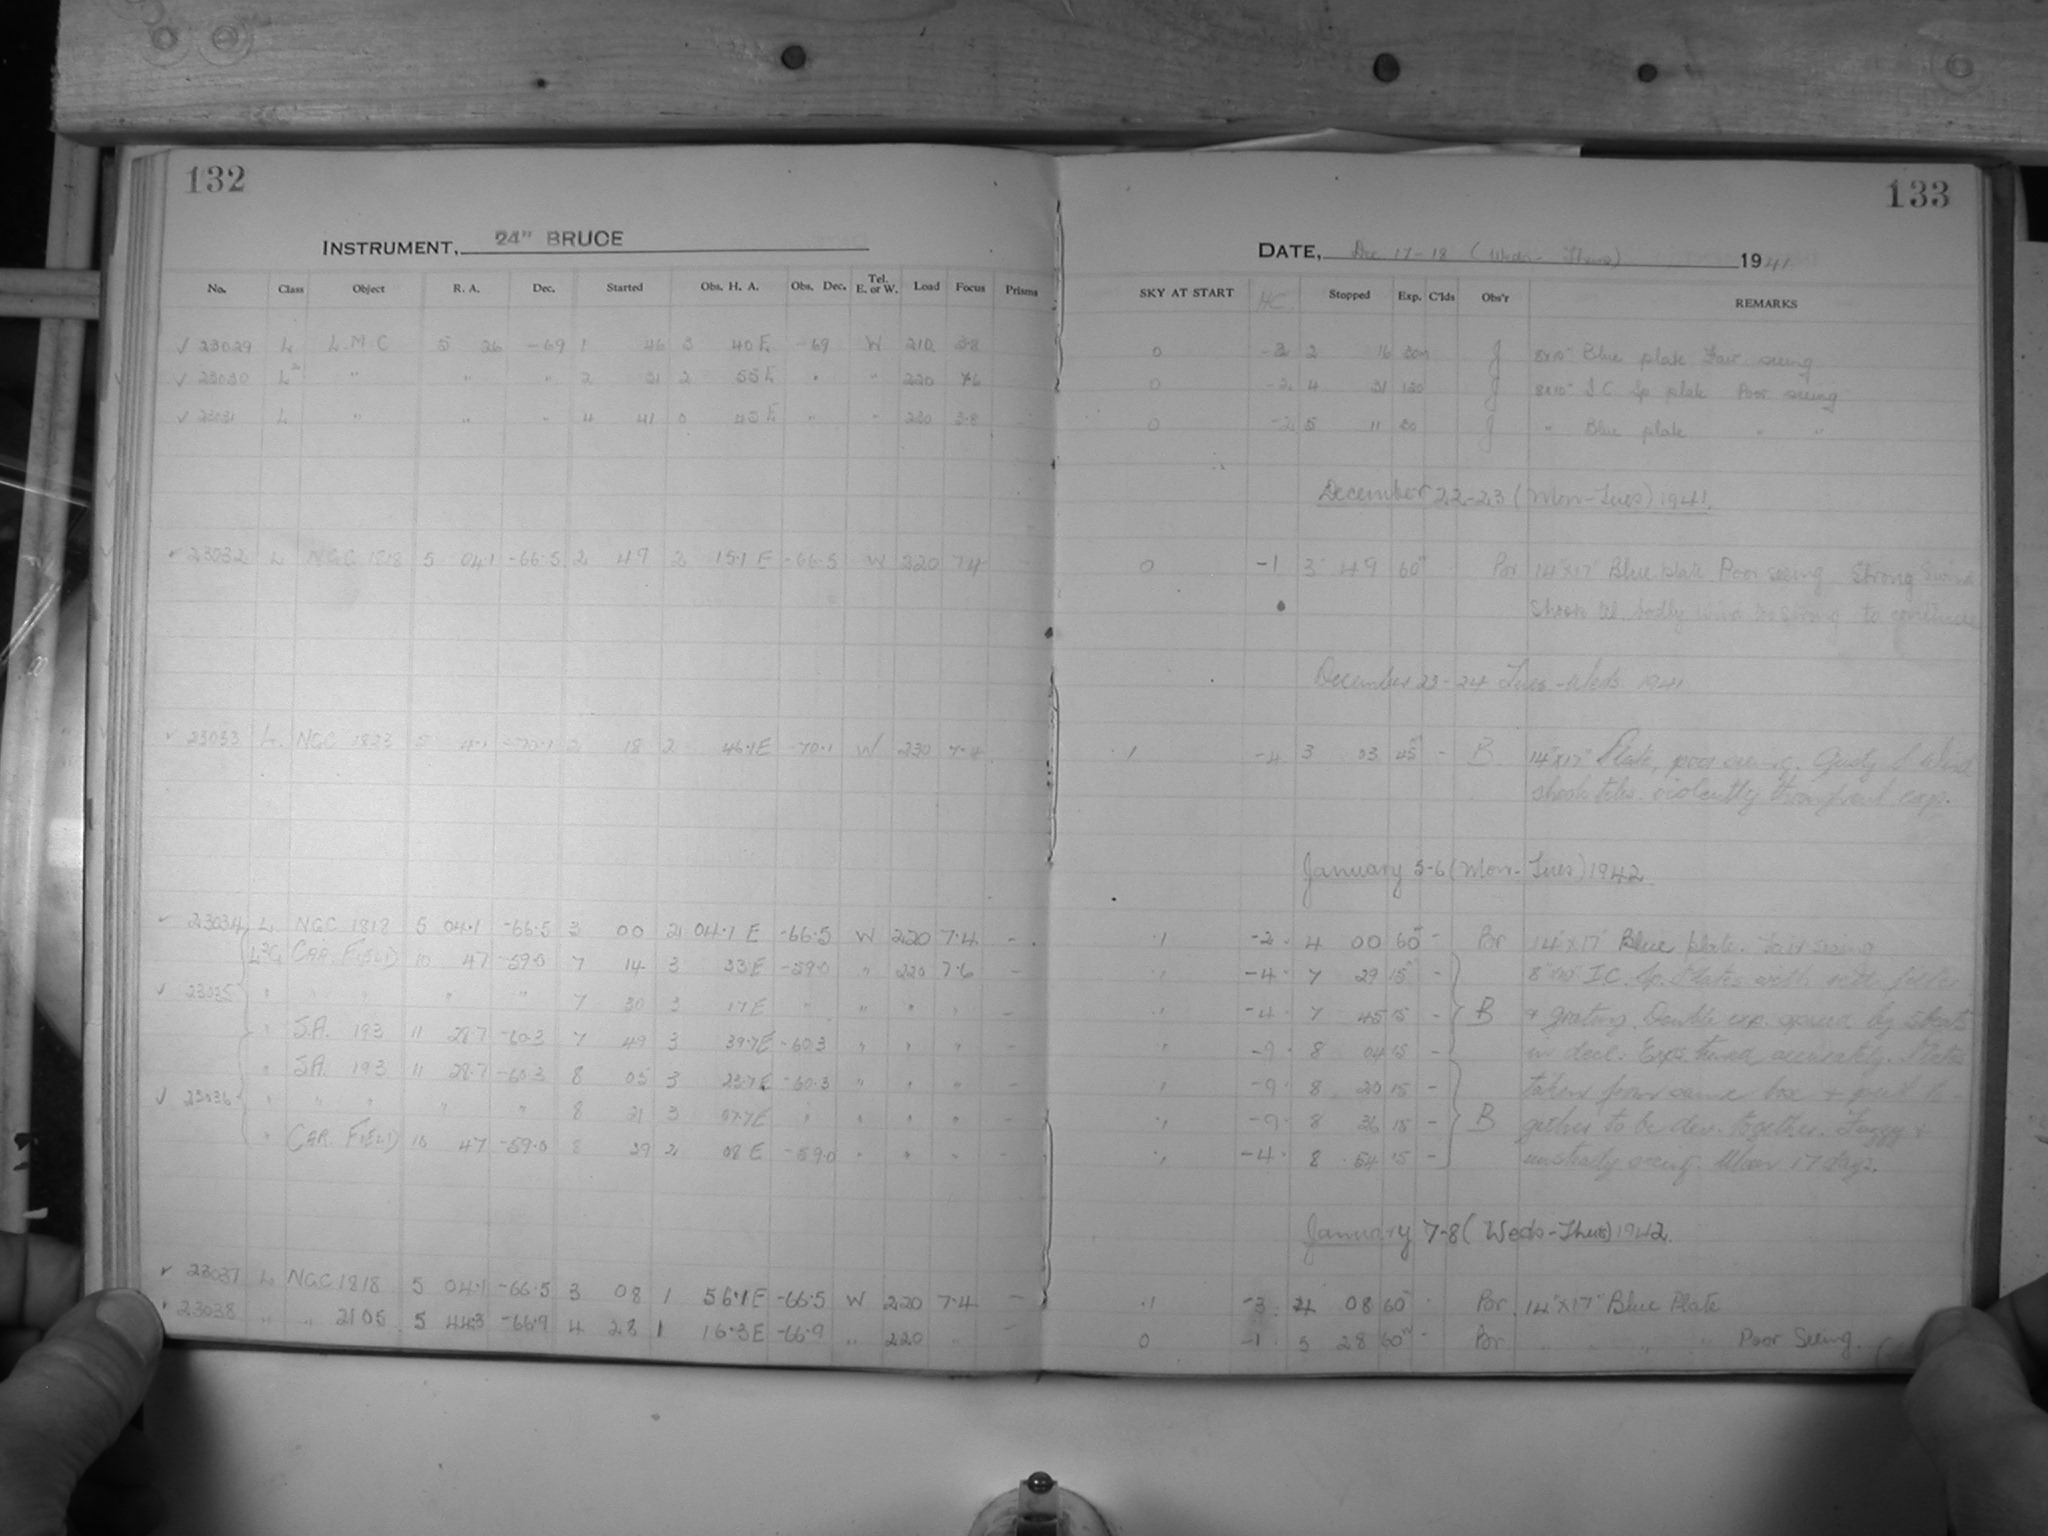 132
INSTRUMENT, 24" BRUCE
No. Class Object R. A. Dec. Started Obs. H. A. Obs. Dec. Tel. E. or W. Load Focus Prisms
✓ 23029 L L.M.C 5 26 -69 1 46 3 40E -69 W 210 3.8
✓ 23030 L " " " 2 31 2 55E " " 220 7.6
✓ 23031 L " " " 4 41 0 45E " " 230 3.8
✓ 23032 L NGC 1818 5 04.1 -66.5 2 47 2 15.1 E -66.5 W 220 7.4
✓ 23033 L. NGC 1823 5 -70.1 2 18 2 46.1E -70.1 W 230 7.4
✓ 23034 L NGC 1818 5 04.1 -66.5 3 00 2 04.1 E -66.5 W 220 7.4 -
CAR. FIELD 10 47 -59.0 7 14 3 33E -59.0 " 220 7.6 -
✓ 23035 " " " " " 7 30 3 17E " " " " -
" S.A. 193 11 28.7 -60.3 7 49 3 39.7E -60.3 " " " -
" S.A. 193 11 28.7 -60.3 8 05 3 23.7E -60.3 " " " -
✓ 23036 " " " " " 8 21 3 07.7E " " " " -
" CAR. FIELD 10 47 -59.0 8 39 2 08 E -59.0 " " " -
✓ 23037 L NGC 1818 5 04.1 -66.5 3 08 1 56.1E -66.5 W 220 7.4 -
✓ 23038 " " 2105 5 44.3 -66.9 4 28 1 16.3E -66.9 " 220 " -
133
DATE, Dec 17-18 (Weds-Thurs) 1941
SKY AT START HC Stopped Exp. C'lds Obs'r REMARKS
0 2 16 30m J 8x10" Blue plate Fair seeing
0 -2 4 31 120 J 8x10" I.C. Sp plate Poor seeing
0 -2 5 11 30 J " Blue plate " "
December 22-23 (Mon-Tues) 1941.
0 -1 3 49 60m Por 14"x17" Blue plate Poor seeing Strong S wind
shook tel. badly wind too strong to continue
December 23-24 Tues-Weds. 1941
.1 -4 3 03 45m - B. 14"x17" Plate, poor seeing. Gusty S. Wind
shook teles. violently throughout exp.
January 5-6 (Mon-Tues) 1942.
.1 -2 4 00 60m - Por 14"x17" Blue plate. Fair seeing
" -4 7 29 15m - 8"x10" I.C. Sp. Plates with red filter
" -4 7 45 15 - B & grating. Double exp. spaced by
" 8 04 15 - in decl. Exps. timed accurately. Plates
" 8 20 15 - taken from same box + put to-
" 8 36 15 - B gether to be dev. together. Foggy &
" -4 8 54 15 - unsteady seeing. Moon 17 days.
January 7-8 (Weds-Thurs) 1942.
.1 -3 4 08 60m Por. 14"x17" Blue Plate
0 -1 5 28 60m - Por. " " " " Poor Seeing.